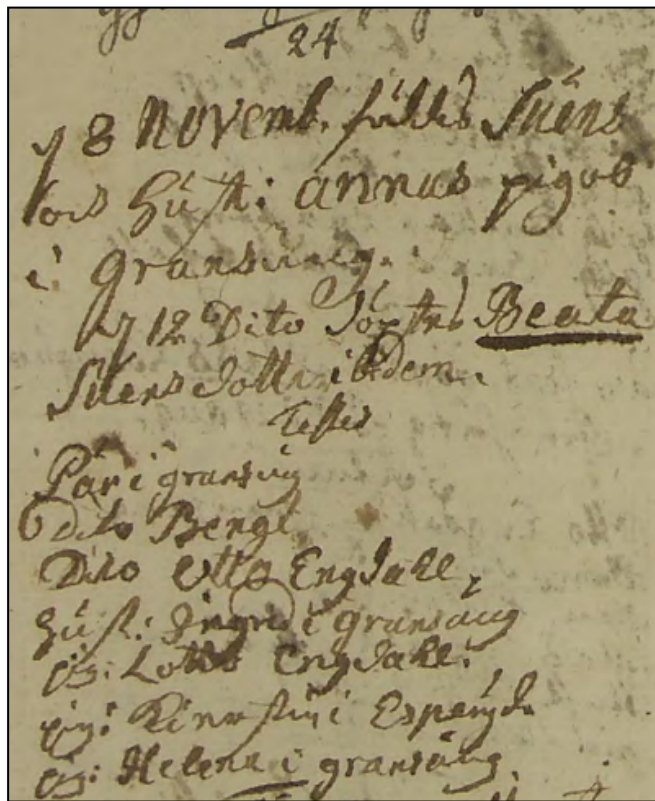 24
d 8 Novemb. föddes Suens
och Hust: annas pigob
i gransäng.
d 12 Dito döptes Beata
Suens dotter ibidem.
Testes
Pär i gransäng
Dito Bengt
Dito Otto Engdahl,
Hust: Ingrid i gransäng
pig: Lotta Engdahl.
pig: Kierstin i Esperyd.
pig: Helena i gransäng